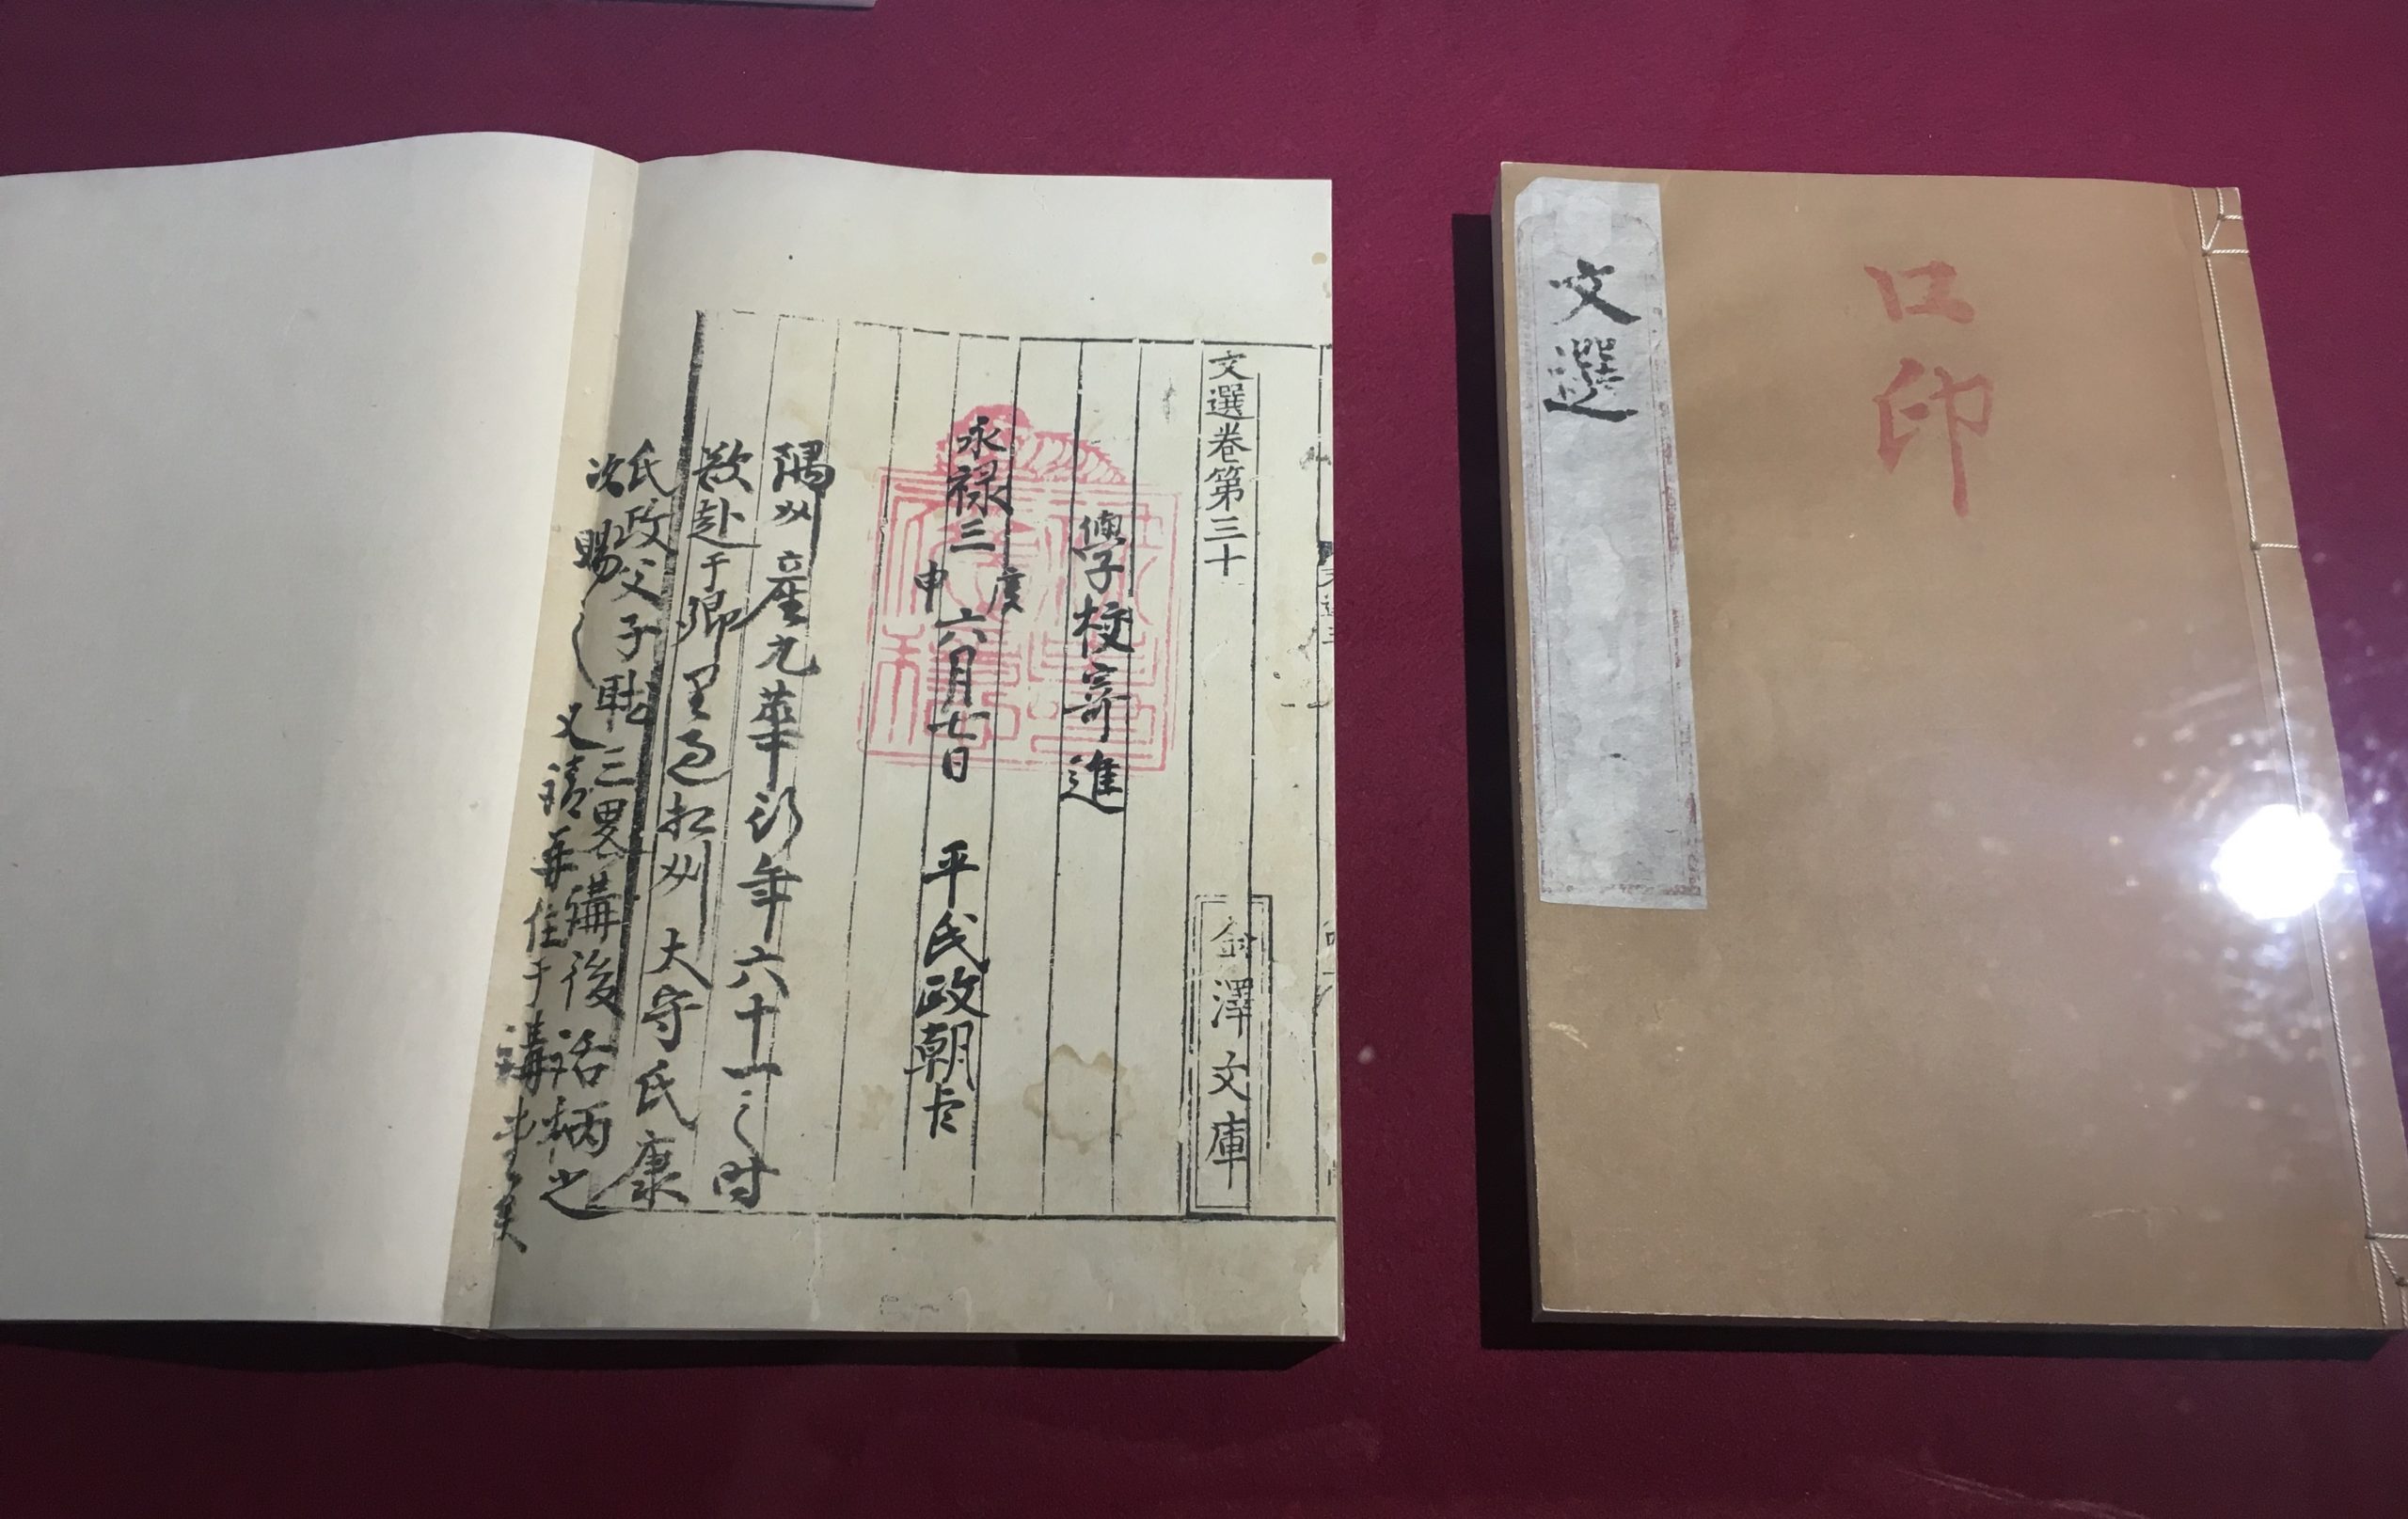 口印
文選
文選卷第三十
金澤文庫
學校寄進
永禄三庚申六月七日 平氏政朝臣
隅州産九華行年六十一之時
欲赴于郷里過相州大守氏康
氏政父子聴三畧講後話柄之
次賜之 又請再住于講堂矣